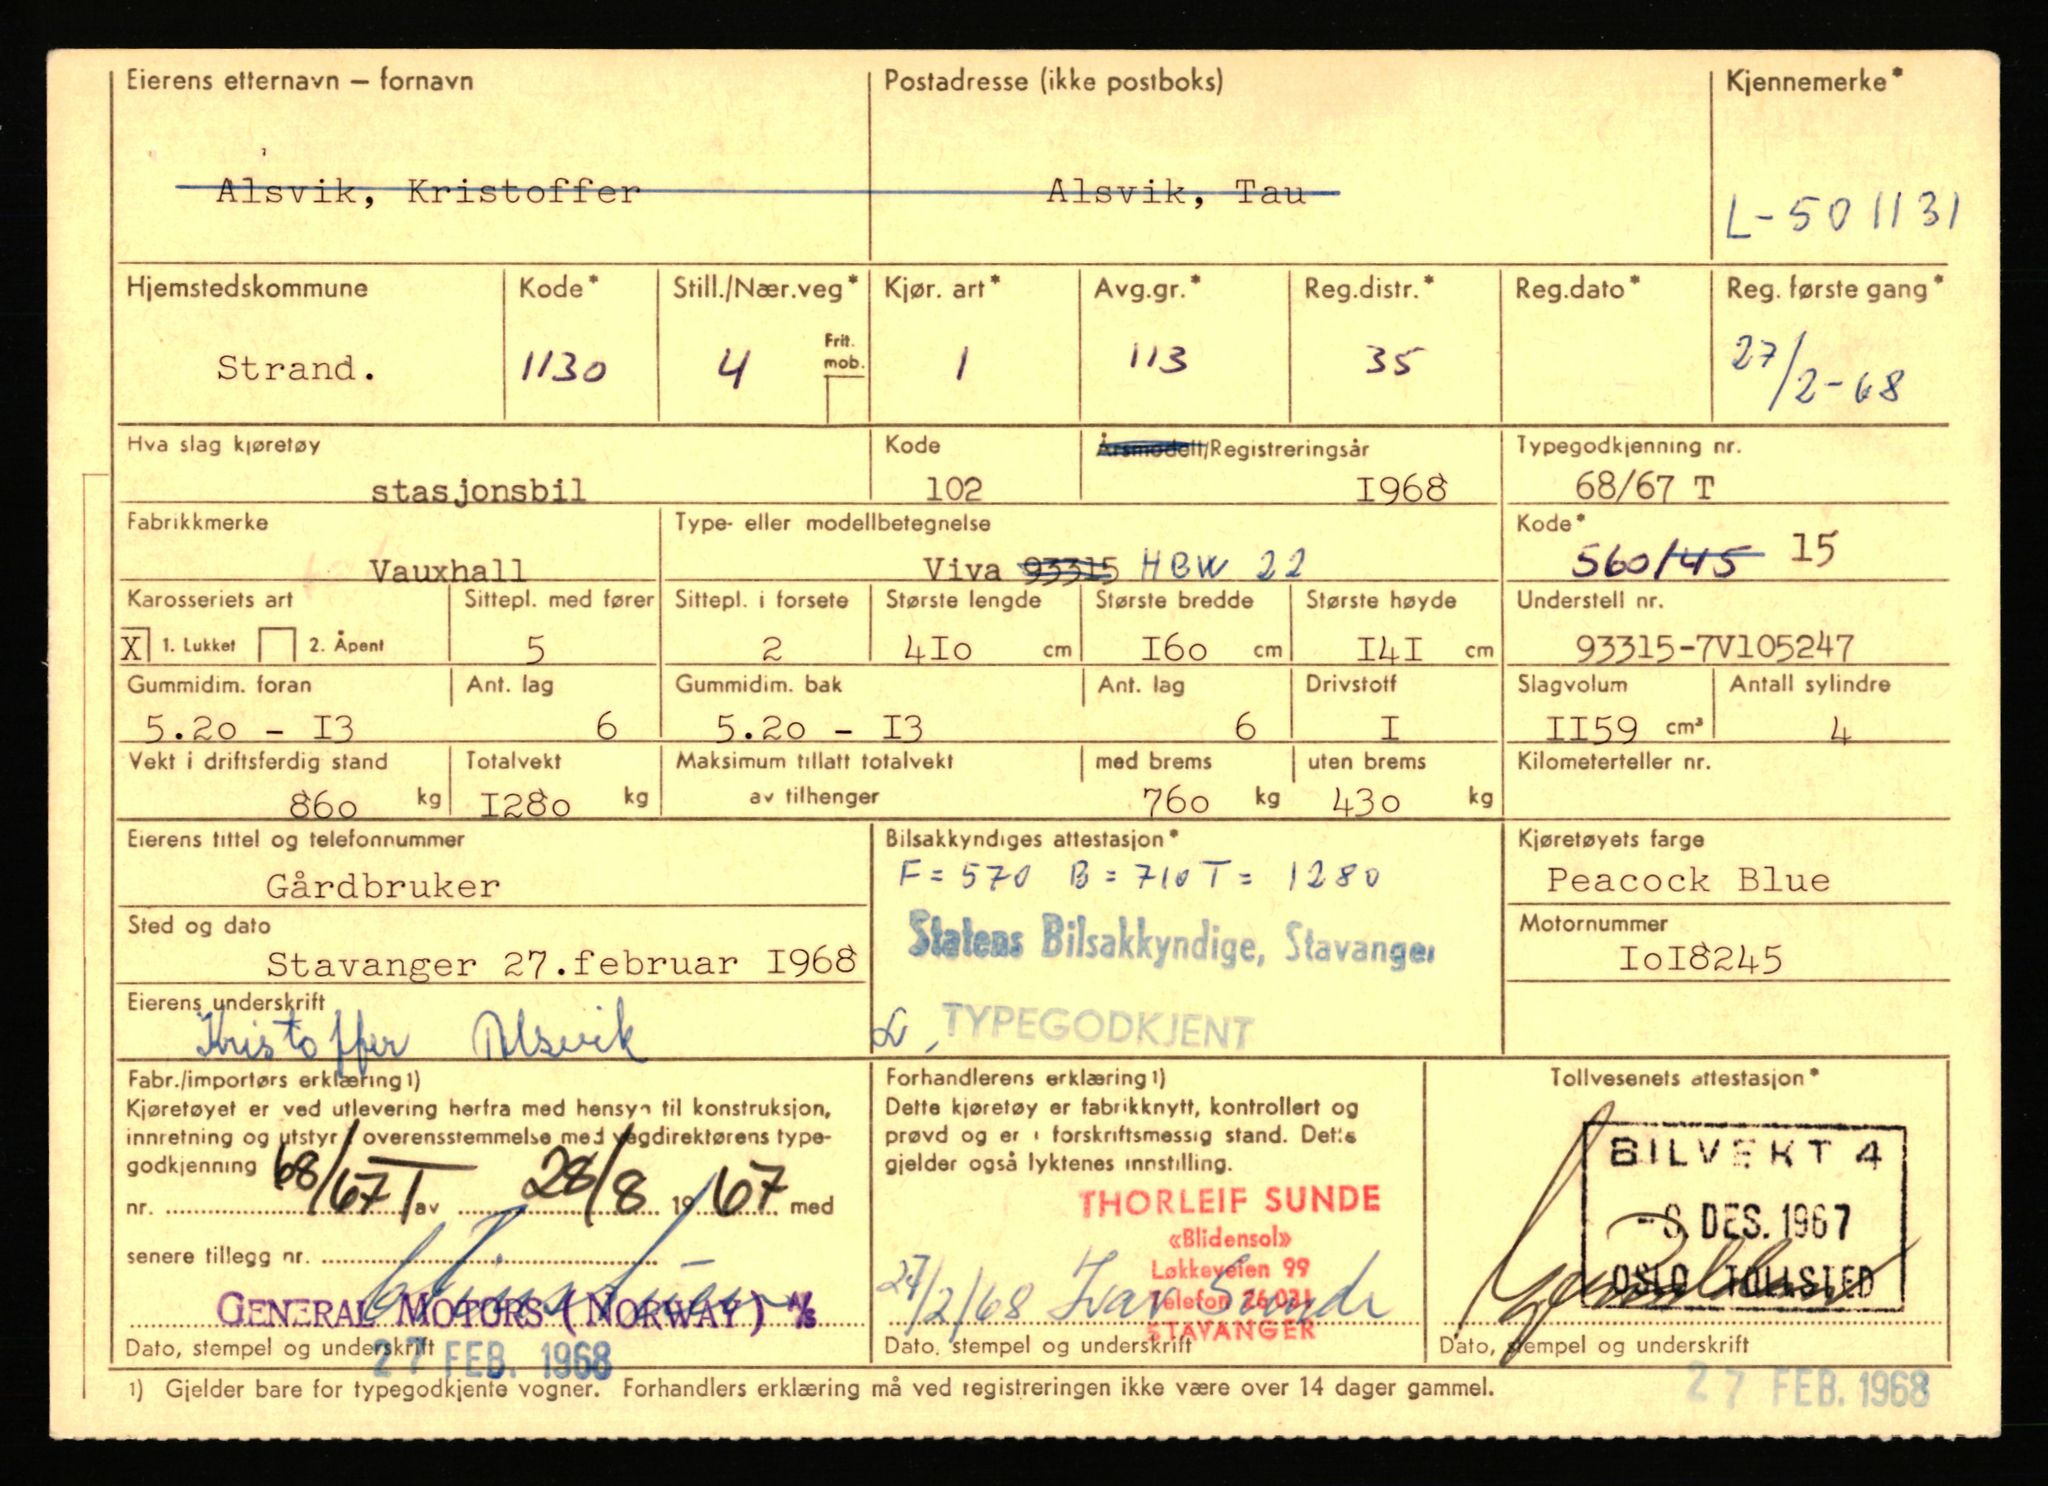 Eierens etternavn – fornavn
Postadresse (ikke postboks)
Kjennemerke*
Alsvik, Kristoffer
Alsvik, Tau
L-501131
Hjemstedskommune
Kode*
Still./Nær.veg*
Kjør. art*
Avg.gr.*
Reg.distr.*
Reg.dato*
Reg. første gang*
Strand.
1130
4
Frit. mob.
1
113
35
27/2-68
Hva slag kjøretøy
Kode
Årsmodell/Registreringsår
Typegodkjenning nr.
stasjonsbil
102
I968
68/67 T
Fabrikkmerke
Type- eller modellbetegnelse
Kode*
Vauxhall
Viva 93315 HBW 22
560/45 15
Karosseriets art
Sittepl. med fører
Sittepl. i forsete
Største lengde
Største bredde
Største høyde
Understell nr.
X 1. Lukket 2. Åpent
5
2
4Io cm
I6o cm
I4I cm
93315-7V105247
Gummidim. foran
Ant. lag
Gummidim. bak
Ant. lag
Drivstoff
Slagvolum
Antall sylindre
5.2o - I3
6
5.2o - I3
6
I
II59 cm³
4
Vekt i driftsferdig stand
Totalvekt
Maksimum tillatt totalvekt
med brems
uten brems
Kilometerteller nr.
86o kg
I28o kg
av tilhenger
76o kg
43o kg
Eierens tittel og telefonnummer
Bilsakkyndiges attestasjon*
Kjøretøyets farge
Gårdbruker
F = 570 B = 710 T = 1280
Peacock Blue
Sted og dato
Statens Bilsakkyndige, Stavanger
Motornummer
Stavanger 27.februar I968
IoI8245
Eierens underskrift
Kristoffer Alsvik
TYPEGODKJENT
Fabr./importørs erklæring 1)
Kjøretøyet er ved utlevering herfra med hensyn til konstruksjon,
innretning og utstyr i overensstemmelse med vegdirektørens type-
godkjenning
nr. 68/67 T av 28/8 1967 med
senere tillegg nr.
GENERAL MOTORS (NORWAY) A/S
Dato, stempel og underskrift
27 FEB. 1968
Forhandlerens erklæring 1)
Dette kjøretøy er fabrikknytt, kontrollert og
prøvd og er i forskriftsmessig stand. Dette
gjelder også lyktenes innstilling.
THORLEIF SUNDE
«Blidensol»
Løkkeveien 99
Telefon 26031
STAVANGER
27/2/68 Ivar Sunde
Dato, stempel og underskrift
Tollvesenets attestasjon*
BILVEKT 4
-8. DES. 1967
OSLO TOLLSTED
Dato, stempel og underskrift
27 FEB. 1968
1) Gjelder bare for typegodkjente vogner. Forhandlers erklæring må ved registreringen ikke være over 14 dager gammel.